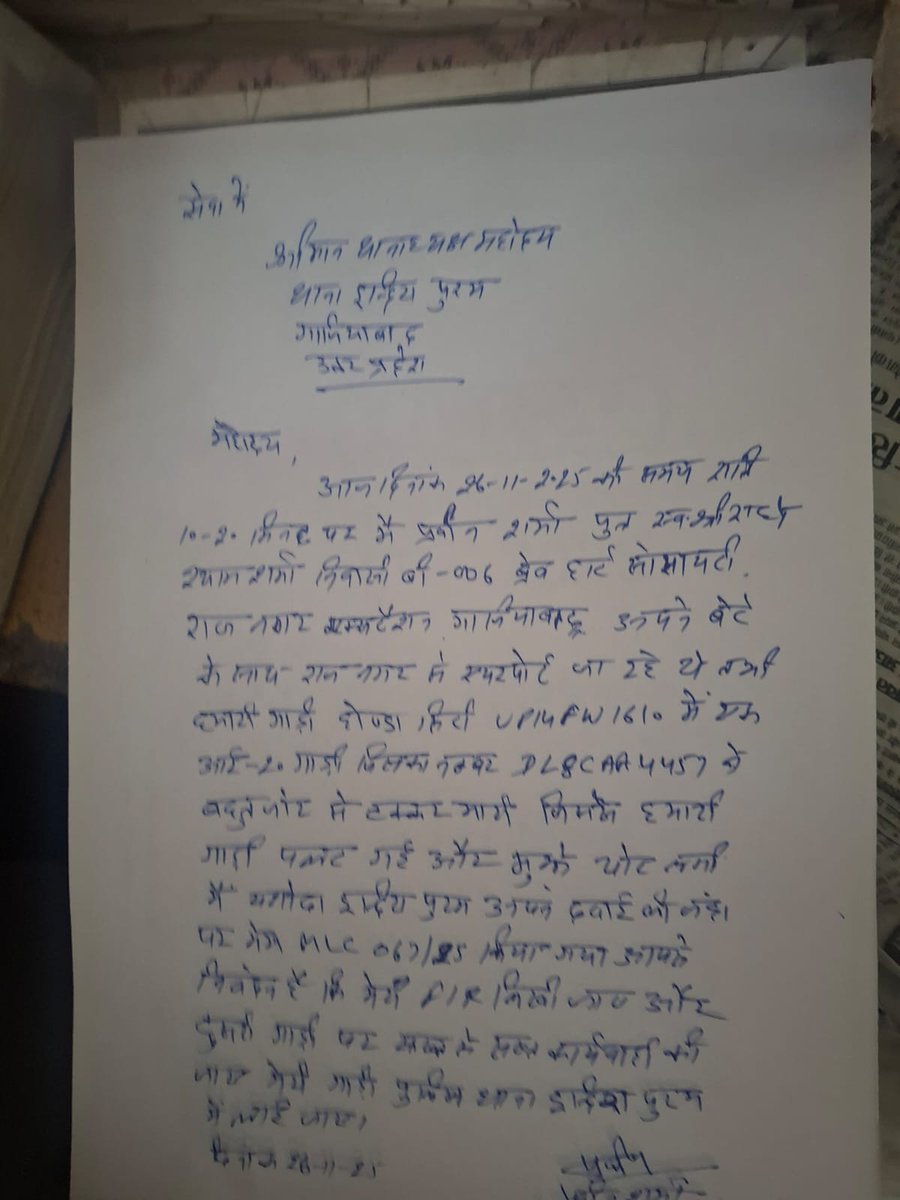 सेवा में
श्रीमान थानाध्यक्ष महोदय
थाना इन्दिरा पुरम
गाजियाबाद
उत्तर प्रदेश
महोदय,
आज दिनांक 26-11-2025 को समय रात्रि
10-20 मिनट पर मैं प्रवीन शर्मा पुत्र स्व. श्री राधे
श्याम शर्मा निवासी बी-006 ब्रेव हार्ट सोसायटी.
राज नगर एक्सटेंशन गाजियाबाद अपने बेटे
के साथ राज नगर से एयरपोर्ट जा रहे थे तभी
हमारी गाड़ी होण्डा सिटी UP14FW1610 में एक
आई-20 गाड़ी जिसका नम्बर DL8CAA4457 ने
बहुत जोर से टक्कर मारी जिससे हमारी
गाड़ी पलट गई और मुझे चोट लगी
मैं यशोदा इन्दिरा पुरम अपने दवाई ली वहां
पर मेरा MLC 067/25 किया गया आपसे
निवेदन है कि मेरी FIR लिखी जाए और
दूसरी गाड़ी पर सख्त से सख्त कार्यवाही की
जाए मेरी गाड़ी पुलिस थाना इन्दिरा पुरम
में लाई जाए।
दिनांक 26-11-25
प्रवीण